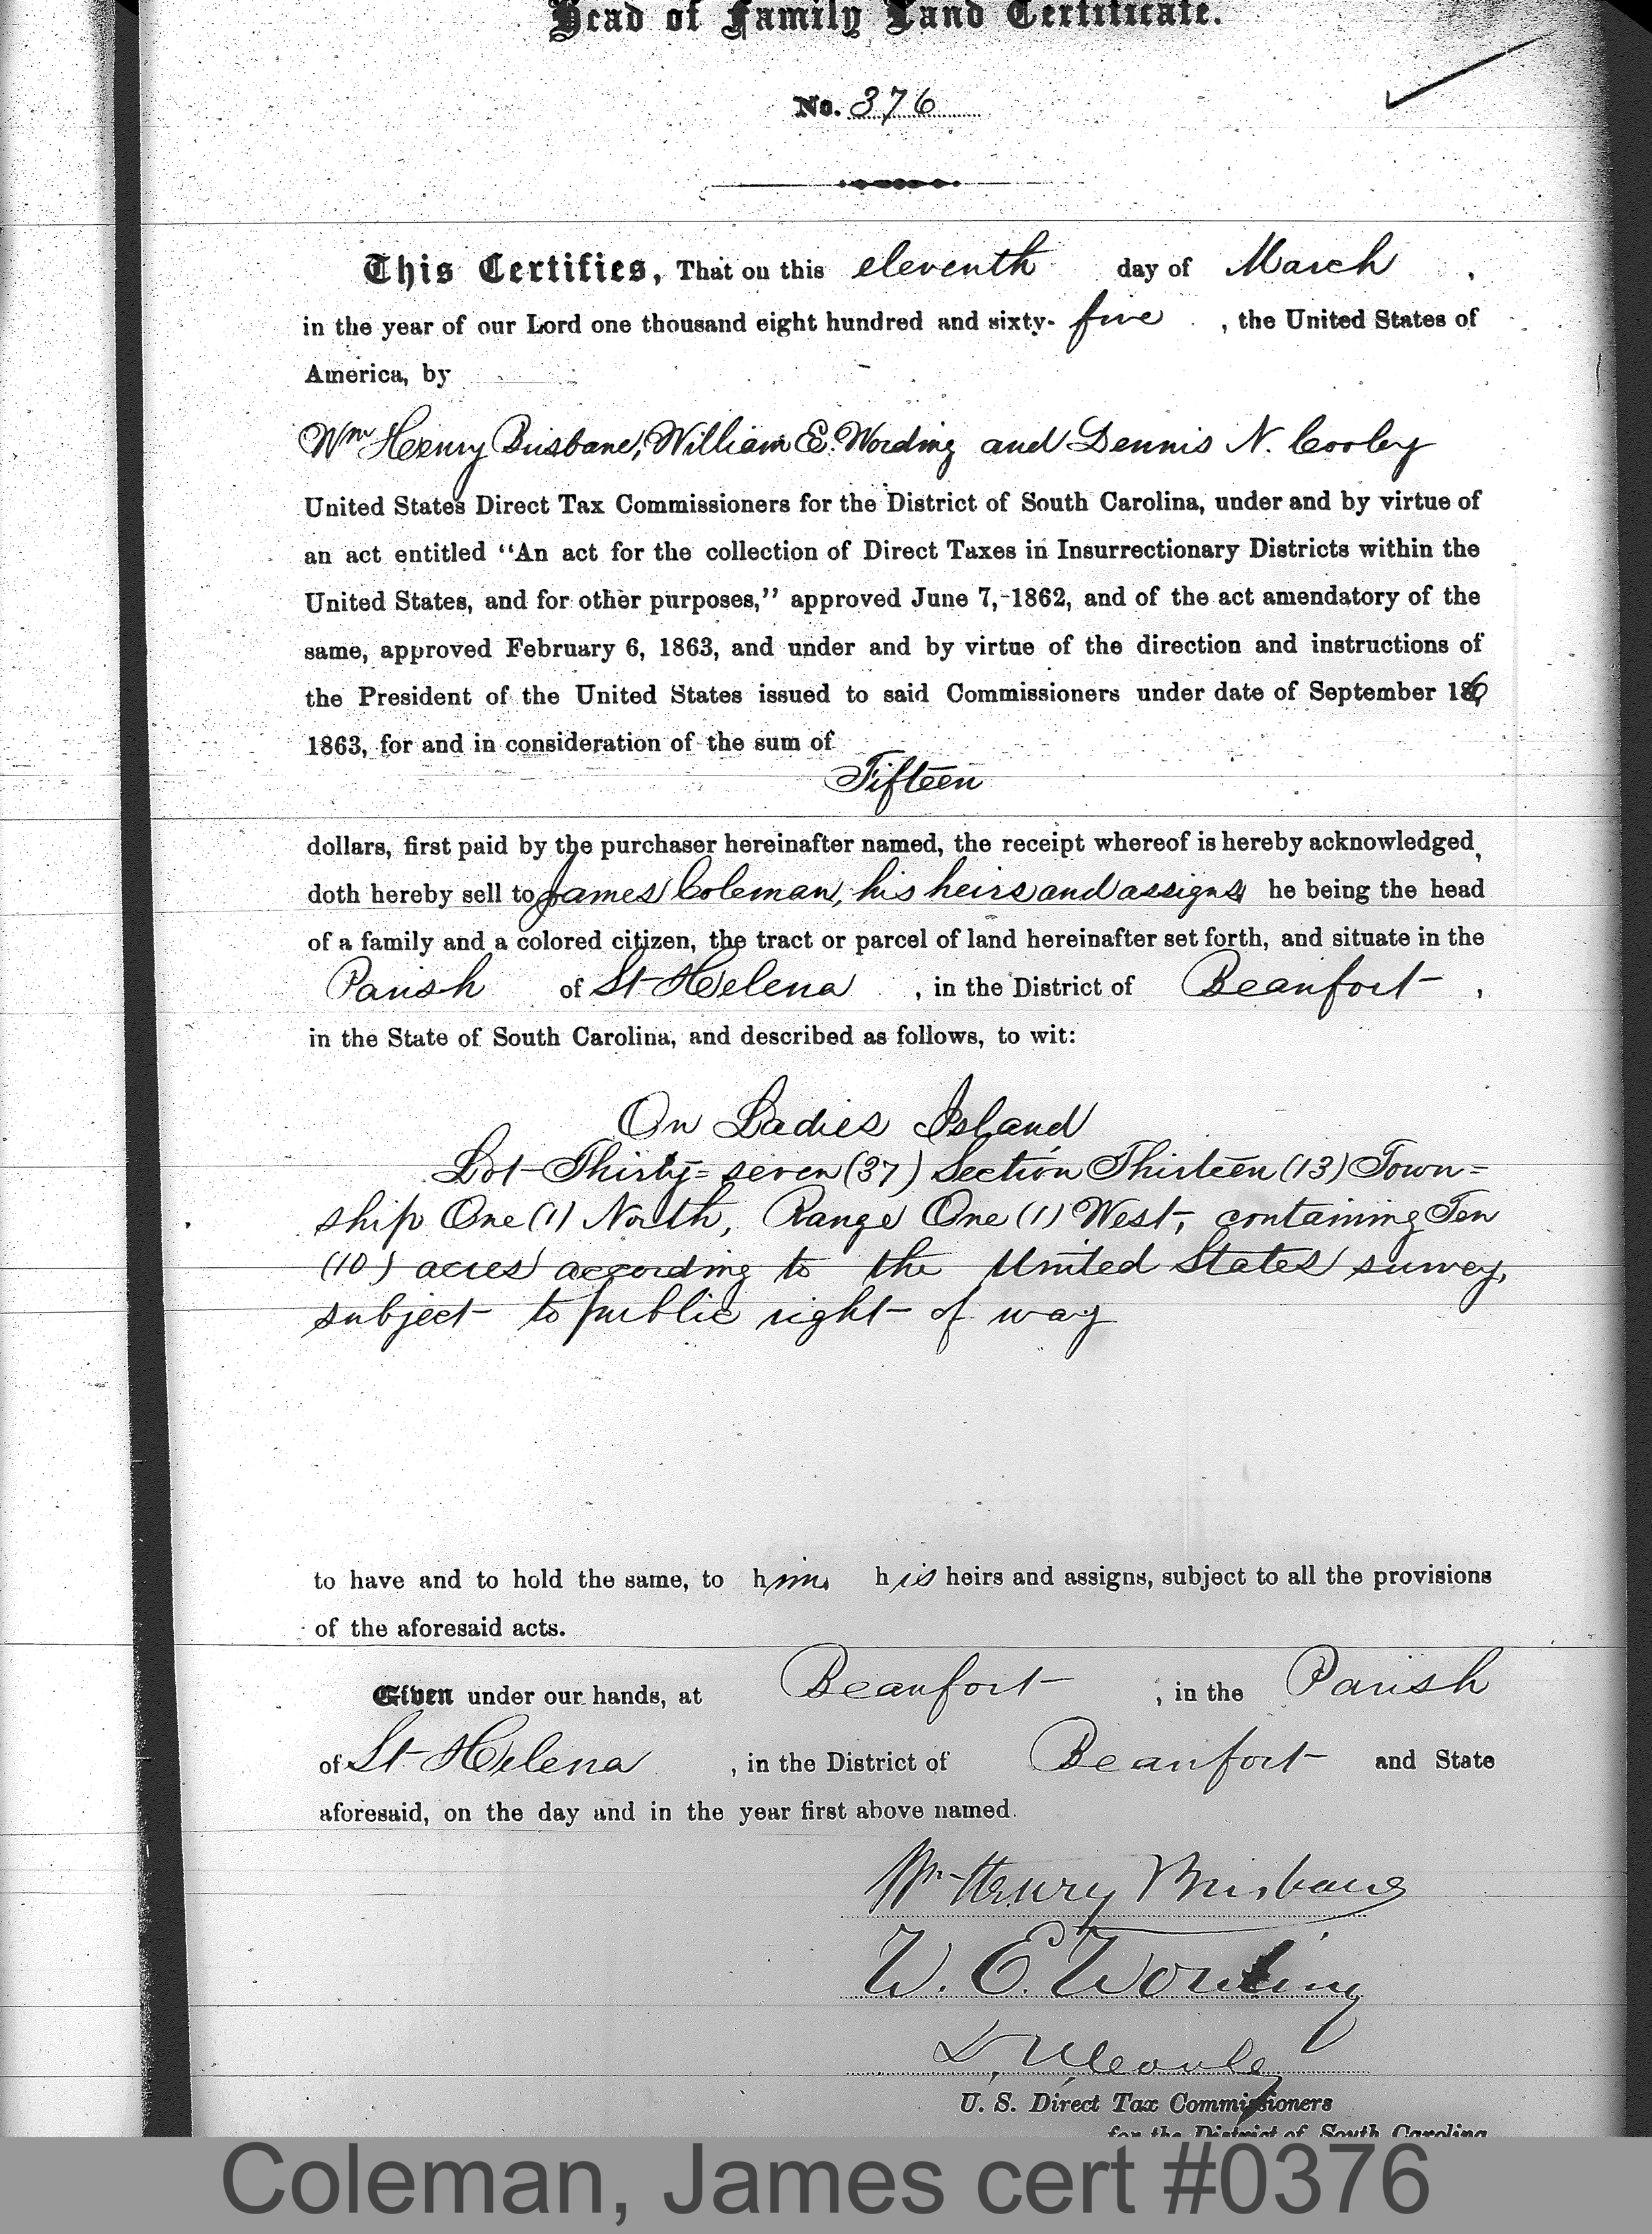 Head of Family Land Certificate.
No. 376
This Certifies, That on this eleventh day of March ,
in the year of our Lord one thousand eight hundred and sixty- five , the United States of
America, by
Wm Henry Brisbane, William E. Wording and Dennis N. Cooley
United States Direct Tax Commissioners for the District of South Carolina, under and by virtue of
an act entitled "An act for the collection of Direct Taxes in Insurrectionary Districts within the
United States, and for other purposes," approved June 7, 1862, and of the act amendatory of the
same, approved February 6, 1863, and under and by virtue of the direction and instructions of
the President of the United States issued to said Commissioners under date of September 16,
1863, for and in consideration of the sum of
Fifteen
dollars, first paid by the purchaser hereinafter named, the receipt whereof is hereby acknowledged,
doth hereby sell to James Coleman, his heirs and assigns he being the head
of a family and a colored citizen, the tract or parcel of land hereinafter set forth, and situate in the
Parish of St Helena , in the District of Beaufort ,
in the State of South Carolina, and described as follows, to wit:
On Ladies Island
Lot Thirty=seven (37) Section Thirteen (13) Town=
ship One (1) North, Range One (1) West, containing Ten
(10) acres according to the United States survey,
subject to public right of way
to have and to hold the same, to him, his heirs and assigns, subject to all the provisions
of the aforesaid acts.
Given under our hands, at Beaufort , in the Parish
of St Helena , in the District of Beaufort and State
aforesaid, on the day and in the year first above named.
Wm Henry Brisbane
W. E. Wording
D. N. Cooley
U. S. Direct Tax Commissioners
for the District of South Carolina
Coleman, James cert #0376